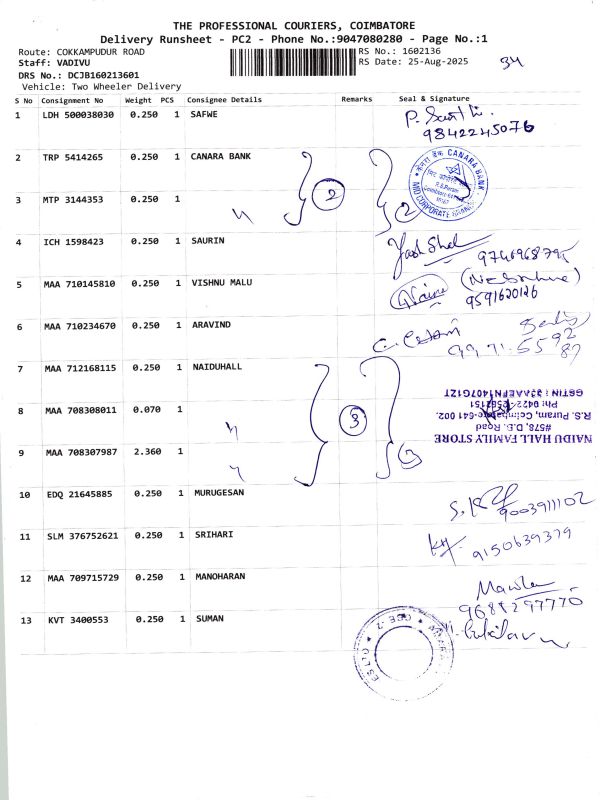 THE PROFESSIONAL COURIERS, COIMBATORE
Delivery Runsheet - PC2 - Phone No.:9047080280 - Page No.:1
Route: COKKAMPUDUR ROAD
RS No.: 1602136
Staff: VADIVU
RS Date: 25-Aug-2025
34
DRS No.: DCJB160213601
Vehicle: Two Wheeler Delivery
S No Consignment No Weight PCS Consignee Details Remarks Seal & Signature
1 LDH 500038030 0.250 1 SAFWE
9842245076
2 TRP 5414265 0.250 1 CANARA BANK
CANARA BANK
R.S.Puram
2 2
3 MTP 3144353 0.250 1 "
4 ICH 1598423 0.250 1 SAURIN
Yash Shah
5 MAA 710145810 0.250 1 VISHNU MALU
9591620126
6 MAA 710234670 0.250 1 ARAVIND
7 MAA 712168115 0.250 1 NAIDUHALL
8 MAA 708308011 0.070 1 "
3 3
NAIDU HALL FAMILY STORE
#578, D.B. Road
R.S. Puram, Coimbatore-641 002.
9 MAA 708307987 2.360 1 "
10 EDQ 21645885 0.250 1 MURUGESAN
9003911102
11 SLM 376752621 0.250 1 SRIHARI
9150639379
12 MAA 709715729 0.250 1 MANOHARAN
9688297770
13 KVT 3400553 0.250 1 SUMAN